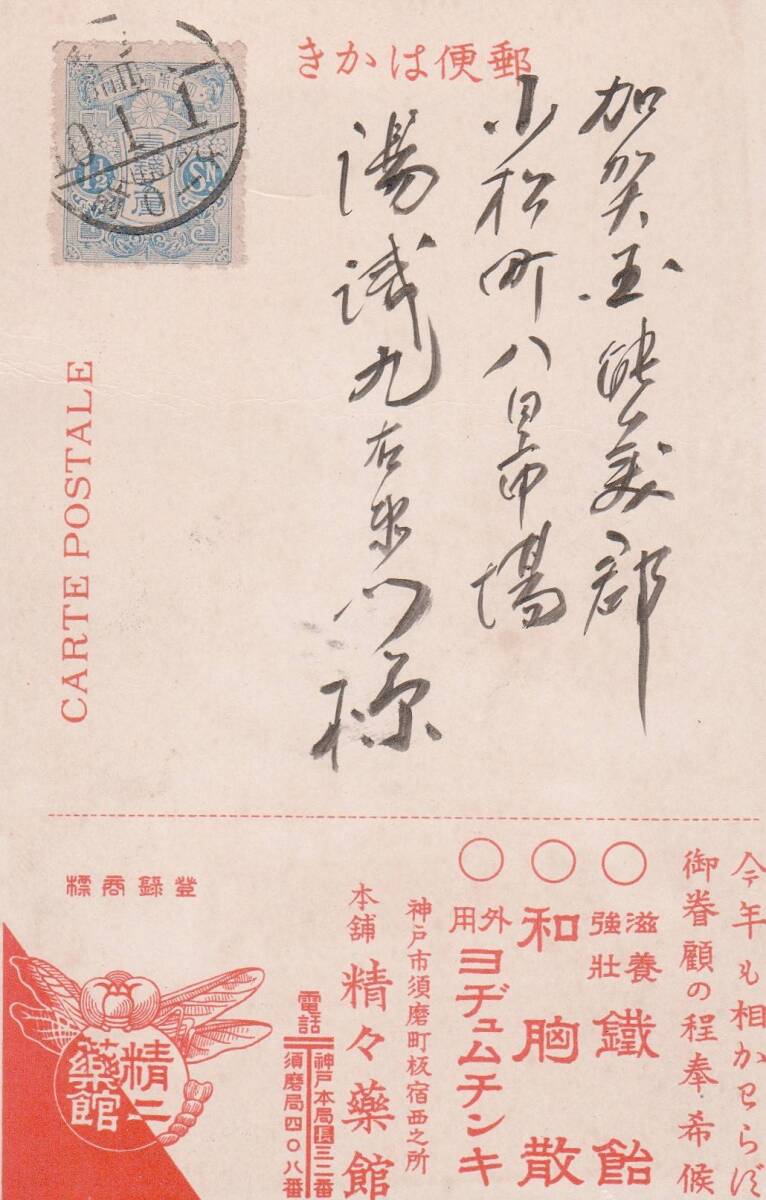 郵便はかき
加賀国能美郡
小松町八日市場
湯浅九右衛門様
10.1.1
CARTE POSTALE
今年も相かはらず
御眷顧の程奉希候
滋養
強壯
鐵飴
和胸散
外用
ヨヂュムチンキ
神戸市須磨町板宿西之所
本舗
精々藥館
電話
神戸本局
須磨局四〇八番
登錄商標
精々
藥館